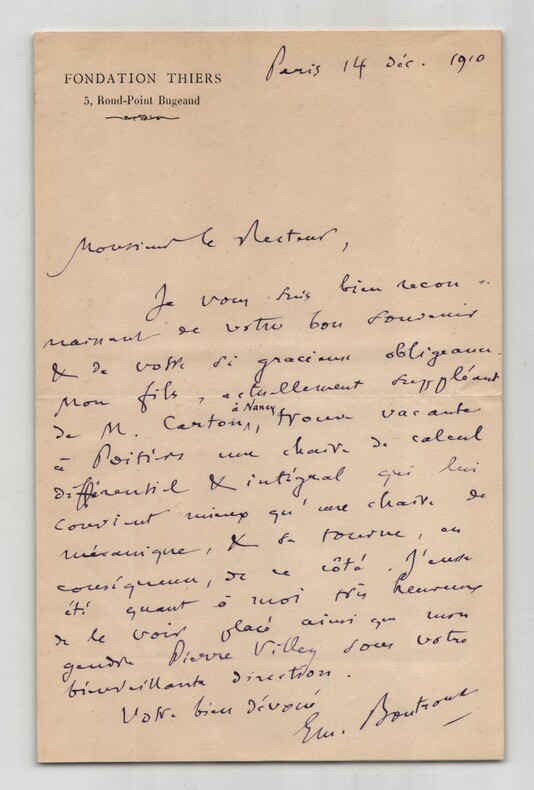 FONDATION THIERS
5, Rond-Point Bugeaud
Paris 14 déc. 1910
Monsieur le Recteur,
Je vous suis bien recon-
naissant de votre bon souvenir
& de votre si gracieuse obligeance.
Mon fils, actuellement suppléant
à Nancy
de M. Carton, trouve vacante
à Poitiers une chaire de calcul
différentiel & intégral qui lui
convient mieux qu'une chaire de
mécanique, & se tourne, en
conséquence, de ce côté. J'eusse
été quant à moi très heureux
de le voir placé ainsi que mon
gendre Pierre Villey sous votre
bienveillante direction.
Votre bien dévoué
Em. Boutroux